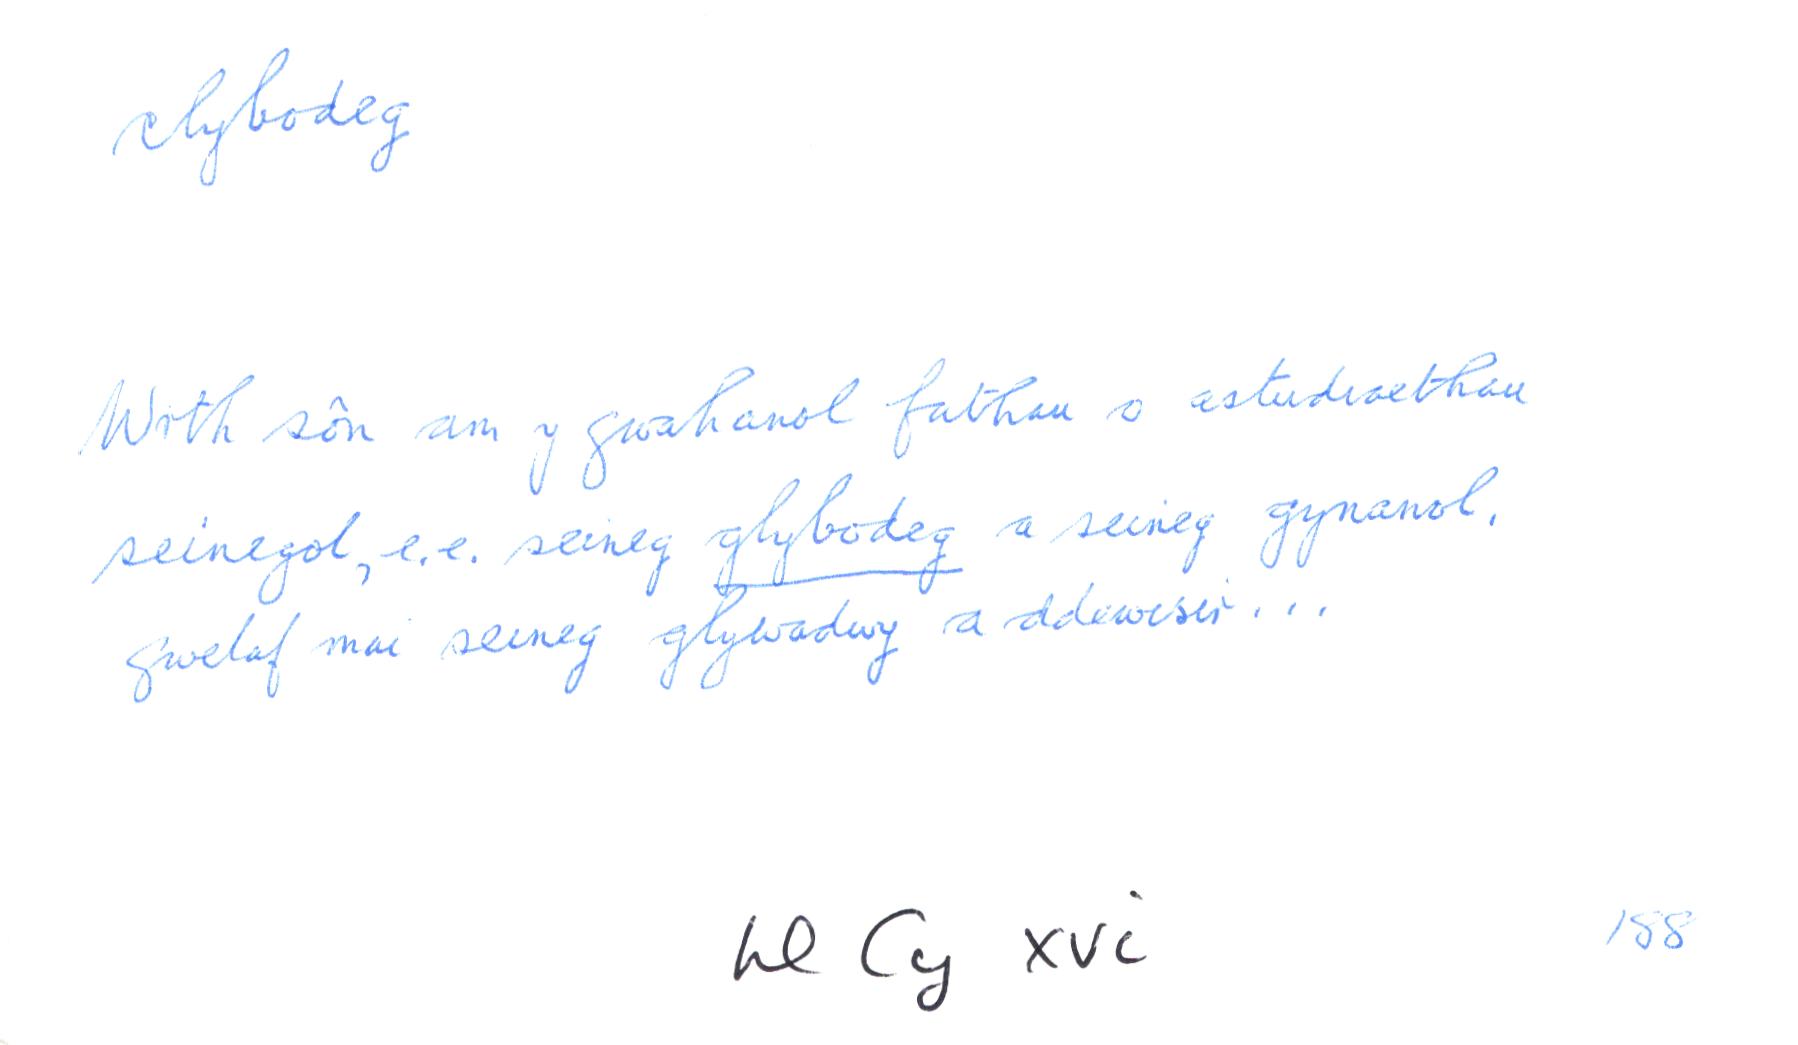 clybodeg
Wrth sôn am y gwahanol fathau o astudiaethau
seinegol, e.e. seineg glybodeg a seineg gynanol,
gwelaf mai seineg glywadwy a ddewisir...
Ll Cy xvi
188